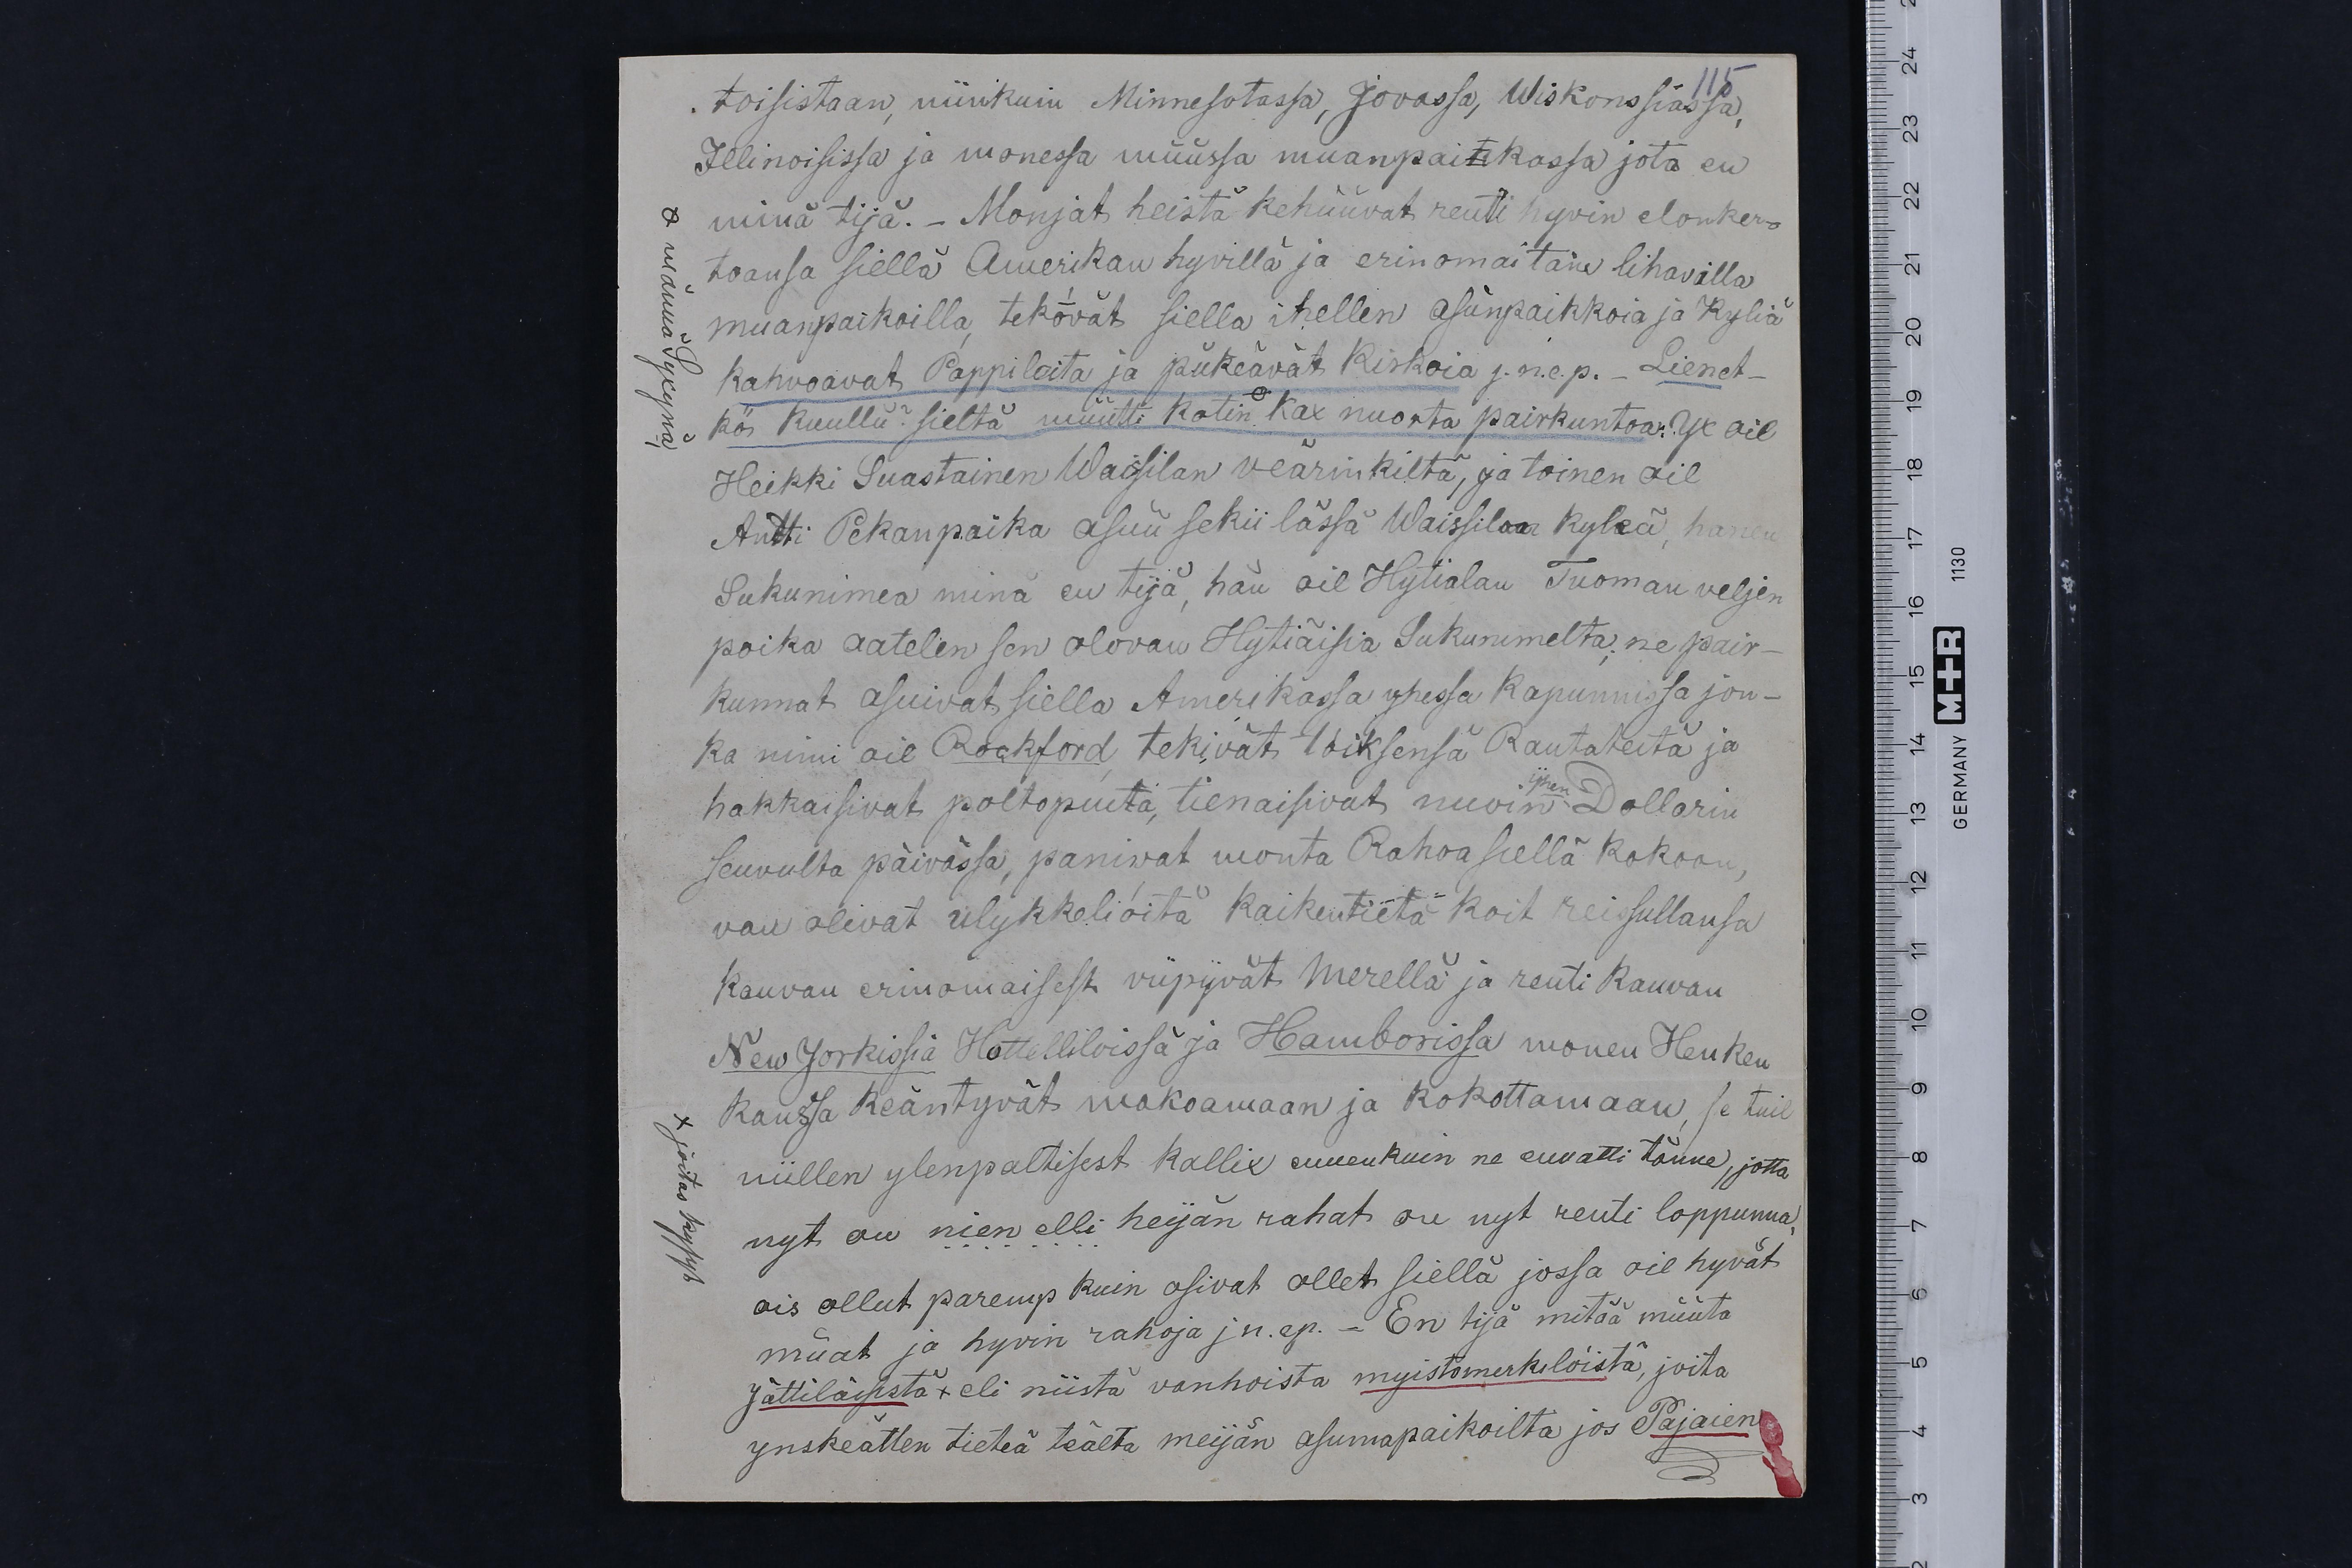 115
toisistaan, niinkuin Minnesotassa, Jovassa, Wiskonssiassa,
Illinoisissa ja monessa müüssa muanpaikassa jota en
minä tijä. – Monjat heistä kehüüvät renti hyvin elonker-
toansa siellä Amerikan hyvillä ja erinomaitain lihavilla
muanpaikoilla, tekövät siella ihellen asünpaikkoia ja Kyliä
kahvoavat Pappiloita ja pükeävät Kirkoia j.n.e.p. – Lienet-
kö kuullu? sieltä müütti kotin Kax nuorta pairkuntoa: Yx oil
Heikki Suastainen Waissilan veärinkiltä, ja toinen oil
Antti Pekanpoika asuü sekii lässä Waissilan kyleä, hänen
Sukunimea minä en tijä, hän oil Hytialan Tuoman veljen
poika aatelen sen olovan Hytiäisia Sukunimelta; ne pair-
kunnat asuivat siella Amerikassa yhessa Kapunnissa jon-
ka nimi oil Rockford, tekivät töiksensä Rautateitä ja
hakkaisivat poltopuita, tienaisivat nuvin yhen Dollarin
seuvulta päivässä, panivat monta Rahoa siellä kokoon,
van olivat ulykkeliöitä kaikentietä koit reissullansa
kauvan erinomaisest viipyivät Merellä ja renti kauvan
New Yorkissa Hottelliloissa ja Hamborissa monen Henken
kanssa keäntyvät makoamaan ja kokottamaan, se tuil
niillen ylenpaltisest kallix ennenkuin ne ennätti tänne, jotta
nyt on nien elli heijän rahat on nyt renti loppunna,
ois ollut paremp kuin osivat ollet siellä jossa oil hyvät
müat ja hyvin rahoja j n. ep. – En tijä mitää müüta
Jättiläisistä x eli niistä vanhoista myistomerkilöistä, joita
ynskeätten tieteä teälta meijän asumapaikoilta jos Pajaien
männä Syksynä
x joitas kysyt